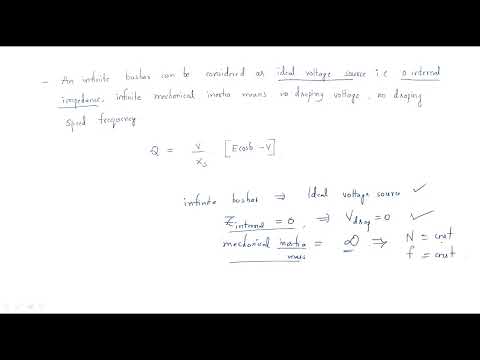 - An infinite busbar can be considered as ideal voltage source i.e 0 internal
impedance, infinite mechanical inertia means no droping voltage, no droping
speed frequency
Q = V/Xs [Ecosδ - V]
infinite busbar ⇒ Ideal voltage source ✓
Zinternal = 0 ⇒ Vdrop = 0 ✓
mechanical inertia = ∞ ⇒ N = cnst
mass f = cnst